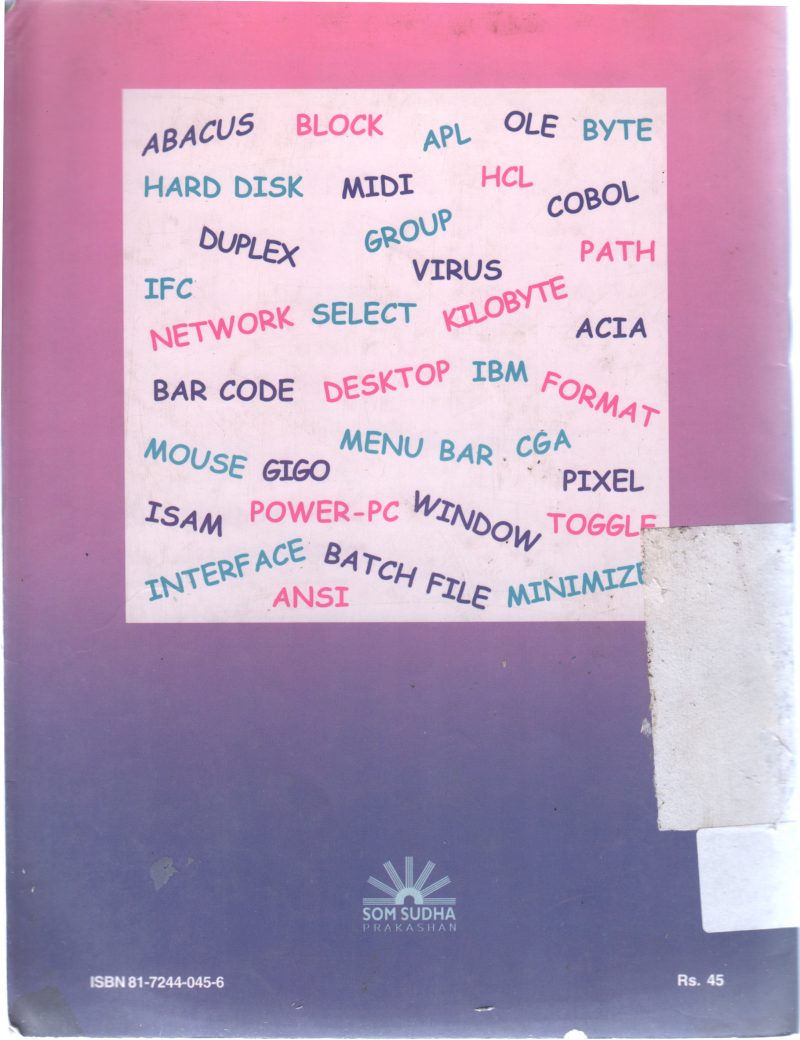 ABACUS BLOCK APL OLE BYTE
HARD DISK MIDI HCL COBOL
DUPLEX GROUP VIRUS PATH
IFC
NETWORK SELECT KILOBYTE ACIA
BAR CODE DESKTOP IBM FORMAT
MOUSE GIGO MENU BAR CGA PIXEL
ISAM POWER-PC WINDOW TOGGLE
INTERFACE BATCH FILE MINIMIZE
ANSI
SOM SUDHA
PRAKASHAN
ISBN 81-7244-045-6 Rs. 45